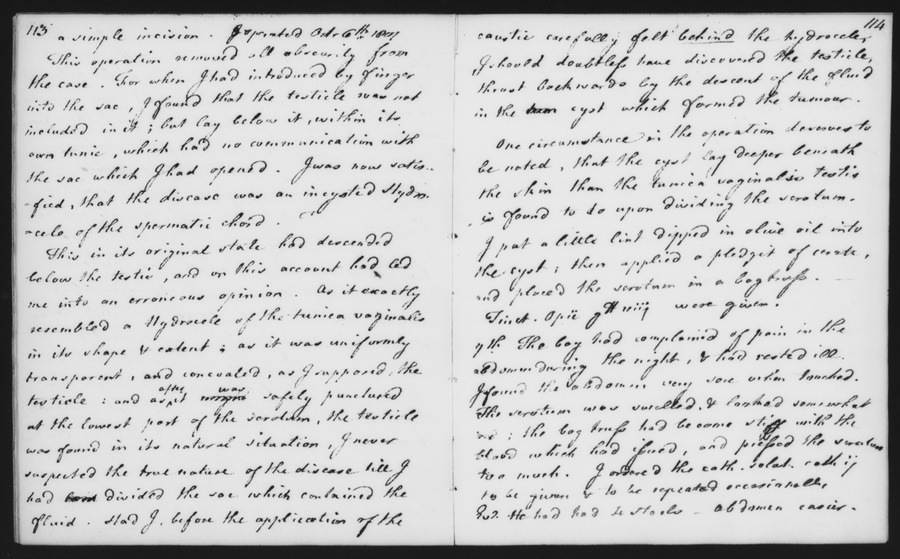 113
a simple incision. I operated Octr. 6th. 1801
This operation removed all obscurity from
the case. For when I had introduced by finger
into the sac, I found that the testicle was not
included in it; but lay below it, within its
own tunic, which had no communication with
the sac which I had opened. I was now satis-
-fied, that the disease was an incysted Hydro-
-cele of the spermatic chord.
This in its original state had descended
below the testis, and on this account had led
me into an erroneous opinion. As it exactly
resembled a Hydrocele of the tunica vaginalis
in its shape & extent; as it was uniformly
transparent, and concealed, as I supposed, the
testicle: and as after it was safely punctured
at the lowest part of the scrotum, the testicle
was found in its natural situation I never
suspected the true nature of the disease till I
had divided the sac which contained the
fluid. Had I, before the application of the
114
caustic carefully felt behind the hydrocele,
I should doubtless have discovered the testicle,
thrust backwards by the descent of the fluid
in the cyst which formed the tumour.
One circumstance in the operation deserves to
be noted, that the cyst lay deeper beneath
the skin than the tunica vaginalis testis
is found to do upon dividing the scrotum.
I put a little lint dipped in olive oil into
the cyst; then applied a pledgit of cerate,
and placed the scrotum in a bag truss.
Tinct. Opii were given.
7th. The boy had complained of pain in the
abdomen during the night, & had rested ill.
I found the abdomen very sore when touched.
The scrotum was swelled, & looked somewhat
red; the bag truss had become stiff with the
blood which had issued, and pressed the scrotum
too much. I ordered the cath. solut. cath ij
to be given & to be repeated occasionally
He had had 4 stools - abdomen easier.